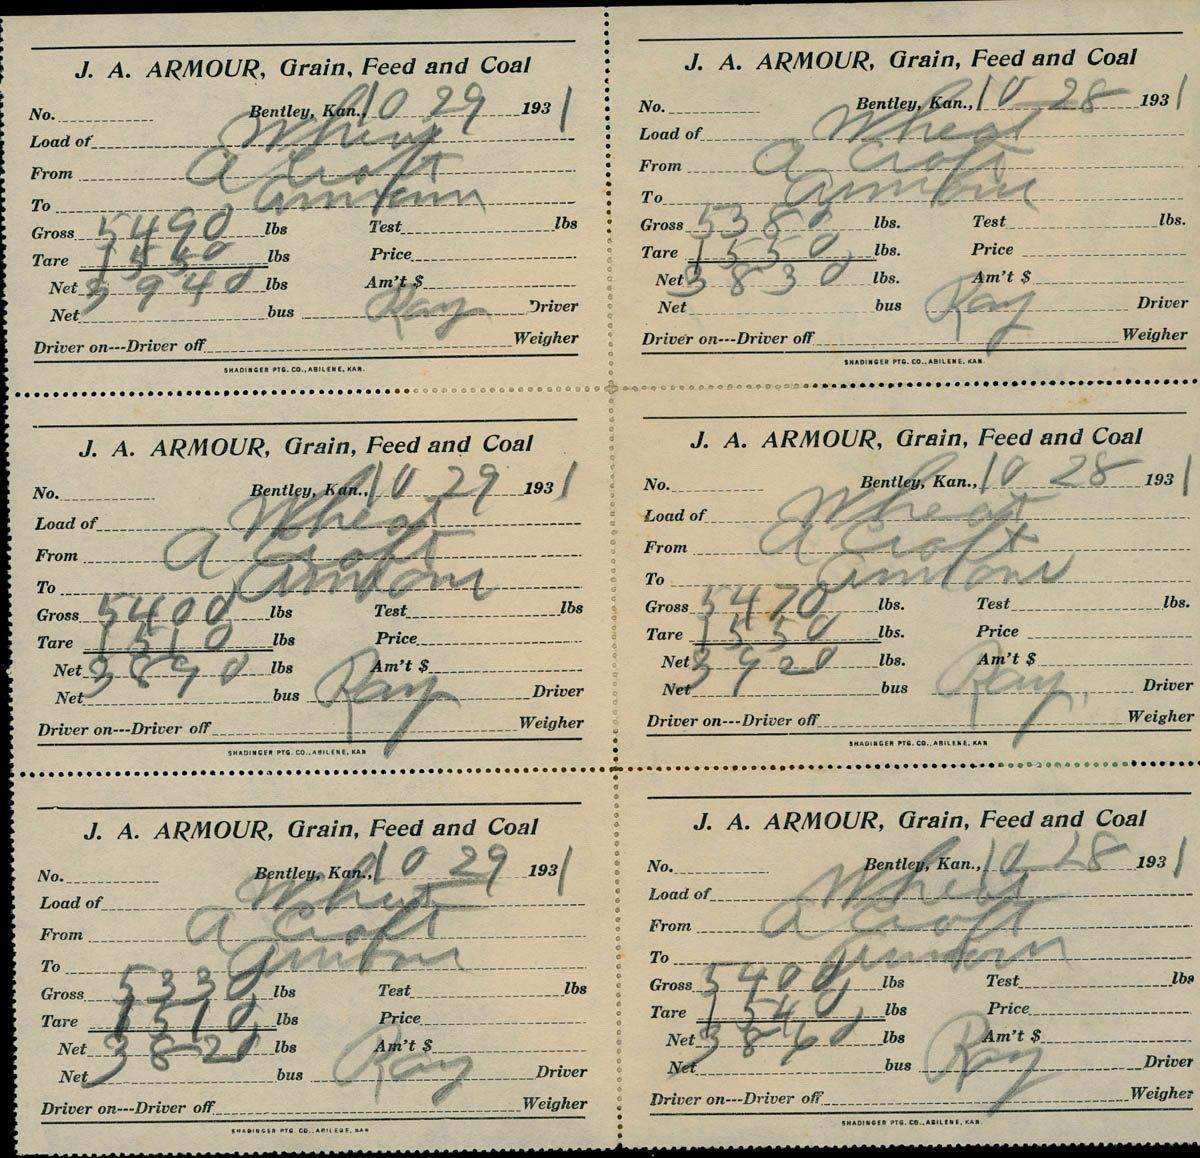 J. A. ARMOUR, Grain, Feed and Coal
No. Bentley, Kan., 10 29 1931
Load of Wheat
From A Croft
To Armour
Gross 5490 lbs Test lbs
Tare 1550 lbs Price
Net 3940 lbs Am't $
Net bus Ray Driver
Driver on---Driver off Weigher
SHADINGER PTG. CO., ABILENE, KAN.
J. A. ARMOUR, Grain, Feed and Coal
No. Bentley, Kan., 10 28 1931
Load of Wheat
From A Croft
To Armour
Gross 5380 lbs. Test lbs.
Tare 1550 lbs. Price
Net 3830 lbs. Am't $
Net bus Ray Driver
Driver on---Driver off Weigher
SHADINGER PTG. CO., ABILENE, KAN.
J. A. ARMOUR, Grain, Feed and Coal
No. Bentley, Kan., 10 29 1931
Load of Wheat
From A Croft
To Armour
Gross 5400 lbs Test lbs
Tare 1510 lbs Price
Net 3890 lbs Am't $
Net bus Ray Driver
Driver on---Driver off Weigher
SHADINGER PTG. CO., ABILENE, KAN
J. A. ARMOUR, Grain, Feed and Coal
No. Bentley, Kan., 10 28 1931
Load of Wheat
From A Croft
To Armour
Gross 5470 lbs. Test lbs.
Tare 1550 lbs. Price
Net 3920 lbs. Am't $
Net bus Ray Driver
Driver on---Driver off Weigher
SHADINGER PTG. CO., ABILENE, KAN
J. A. ARMOUR, Grain, Feed and Coal
No. Bentley, Kan., 10 29 1931
Load of Wheat
From A Croft
To Armour
Gross 5330 lbs Test lbs
Tare 1510 lbs Price
Net 3820 lbs Am't $
Net bus Ray Driver
Driver on---Driver off Weigher
SHADINGER PTG. CO., ABILENE, KAN
J. A. ARMOUR, Grain, Feed and Coal
No. Bentley, Kan., 10 28 1931
Load of Wheat
From A Croft
To Armour
Gross 5400 lbs Test lbs
Tare 1540 lbs Price
Net 3860 lbs Am't $
Net bus Ray Driver
Driver on---Driver off Weigher
SHADINGER PTG. CO., ABILENE, KAN.